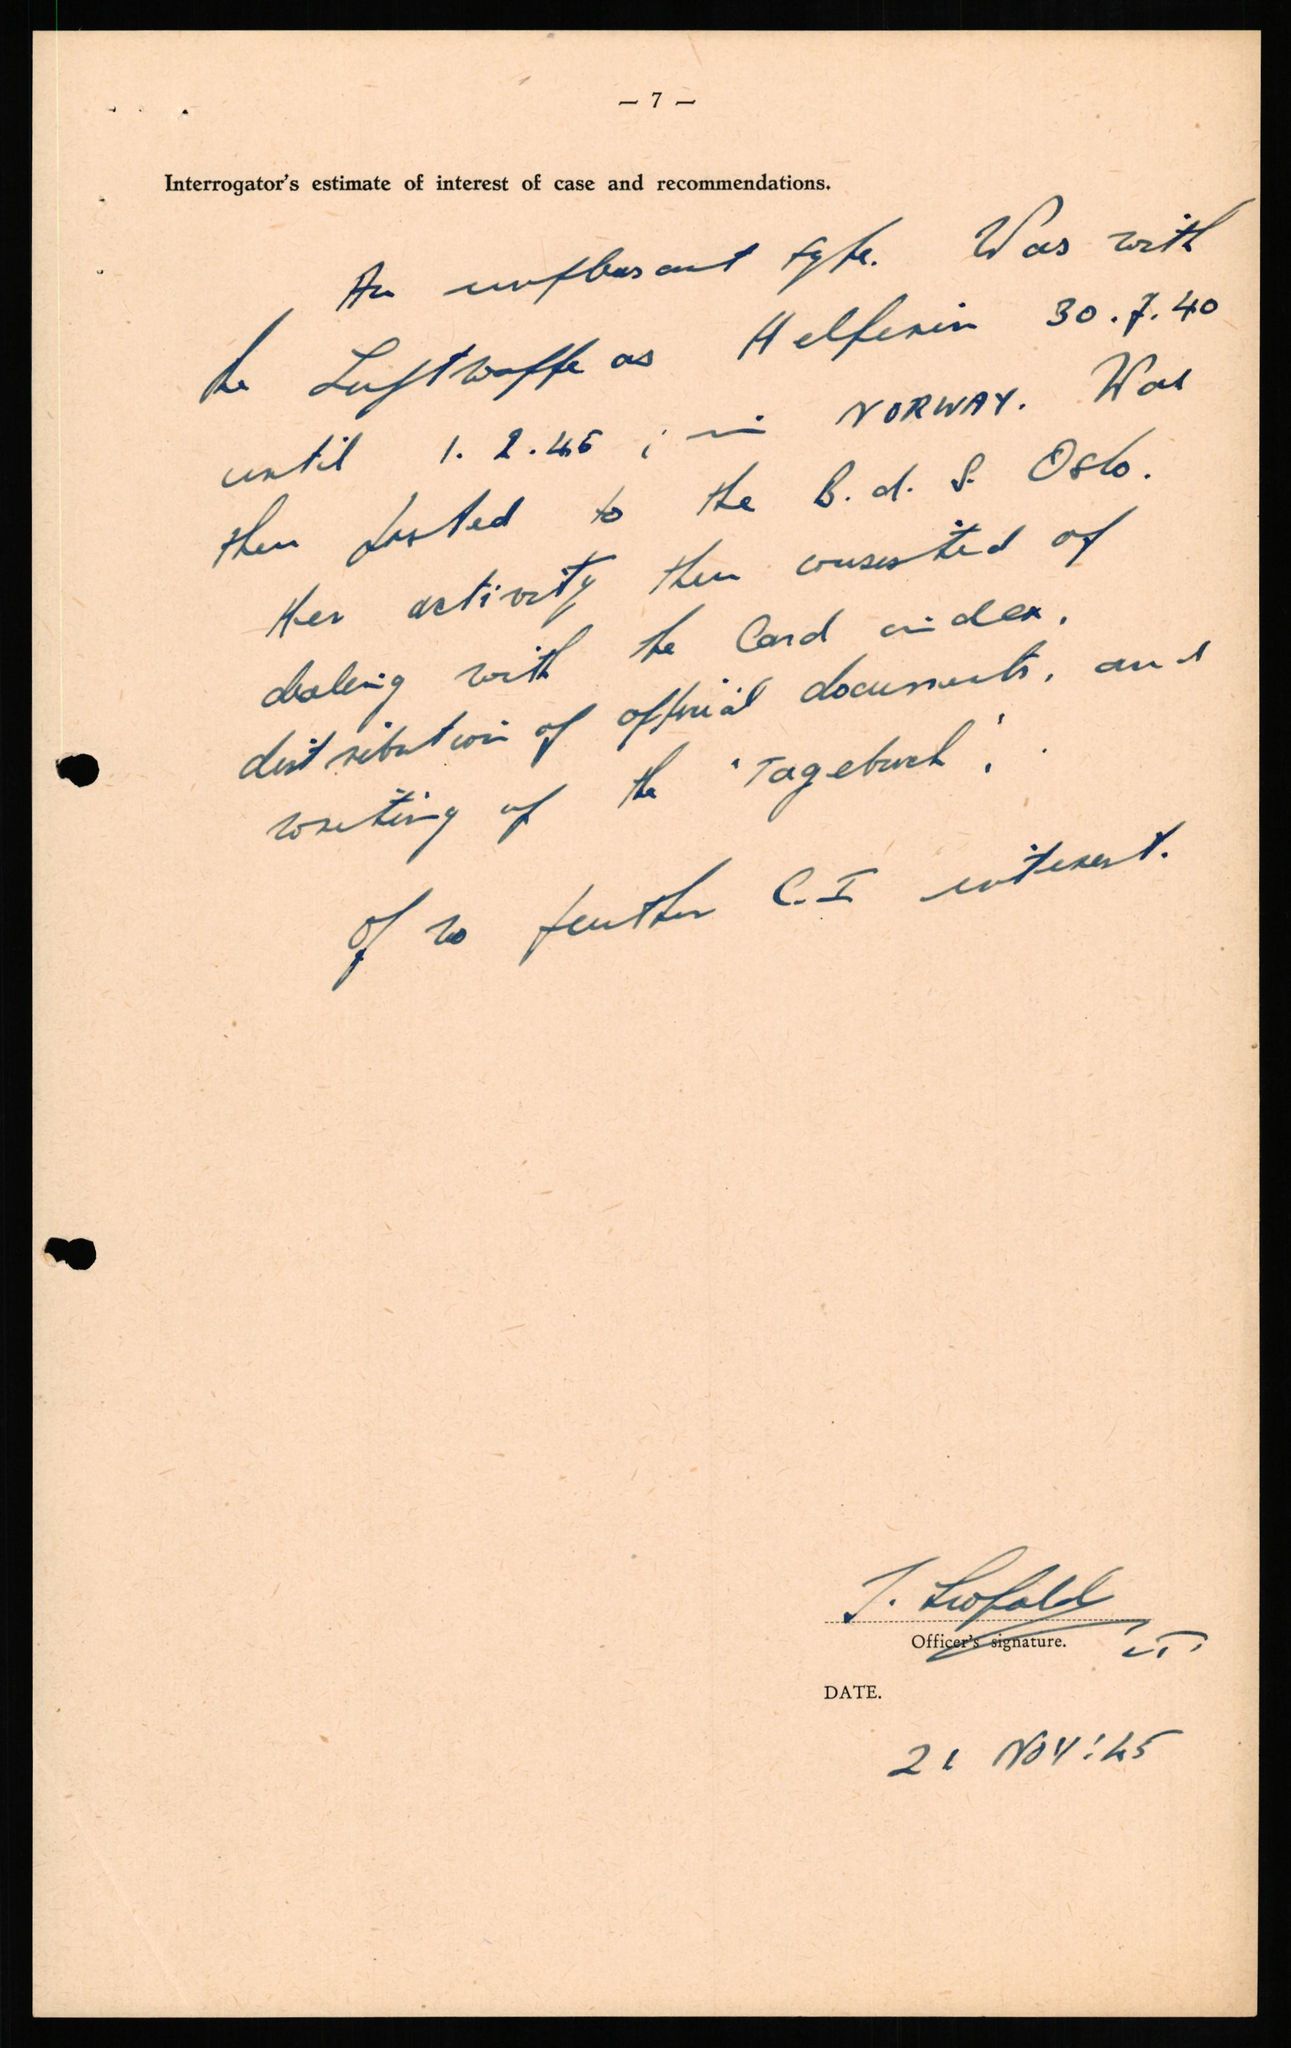 — 7 —
Interrogator's estimate of interest of case and recommendations.
An unpleasant type. Was with
the Luftwaffe as Helferin 30.7.40
until 1.2.45 ; in NORWAY. Was
then posted to the B.d.S. Oslo.
Her activity then consisted of
dealing with the Card index,
distribution of official documents, and
writing of the 'Tagebuch'.
Of no further C.I interest.
J. Leopold
Officer's signature. LT.
DATE.
21 NOV: 45